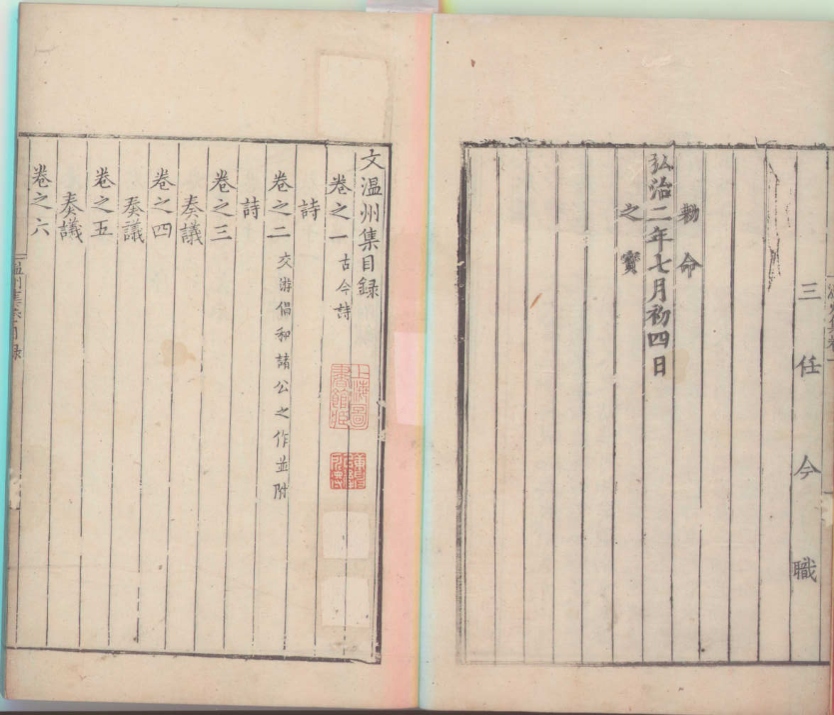 三任今職
勑命
弘治二年七月初四日
之寶
文温州集目録
卷之一 古今詩
詩
卷之二 交游倡和諸公之作並附
詩
卷之三
奏議
卷之四
奏議
卷之五
奏議
卷之六
上海圖書館藏